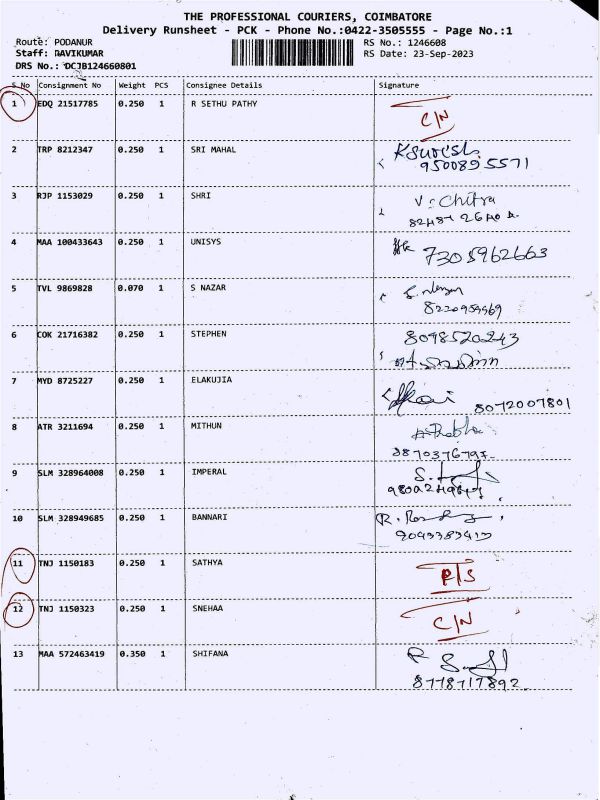 THE PROFESSIONAL COURIERS, COIMBATORE
Delivery Runsheet - PCK - Phone No.:0422-3505555 - Page No.:1
Route: PODANUR RS No.: 1246608
Staff: RAVIKUMAR RS Date: 23-Sep-2023
DRS No.: DCJB124660801
S No Consignment No Weight PCS Consignee Details Signature
1 EDQ 21517785 0.250 1 R SETHU PATHY C/N
2 TRP 8212347 0.250 1 SRI MAHAL KSuresh
9500895571
3 RJP 1153029 0.250 1 SHRI V. Chitra
4 MAA 100433643 0.250 1 UNISYS 7305962663
5 TVL 9869828 0.070 1 S NAZAR
6 COK 21716382 0.250 1 STEPHEN 8098520243
7 MYD 8725227 0.250 1 ELAKUJIA
8072007801
8 ATR 3211694 0.250 1 MITHUN
9 SLM 328964008 0.250 1 IMPERAL
10 SLM 328949685 0.250 1 BANNARI
11 TNJ 1150183 0.250 1 SATHYA P/S
12 TNJ 1150323 0.250 1 SNEHAA C/N
13 MAA 572463419 0.350 1 SHIFANA
8778717892